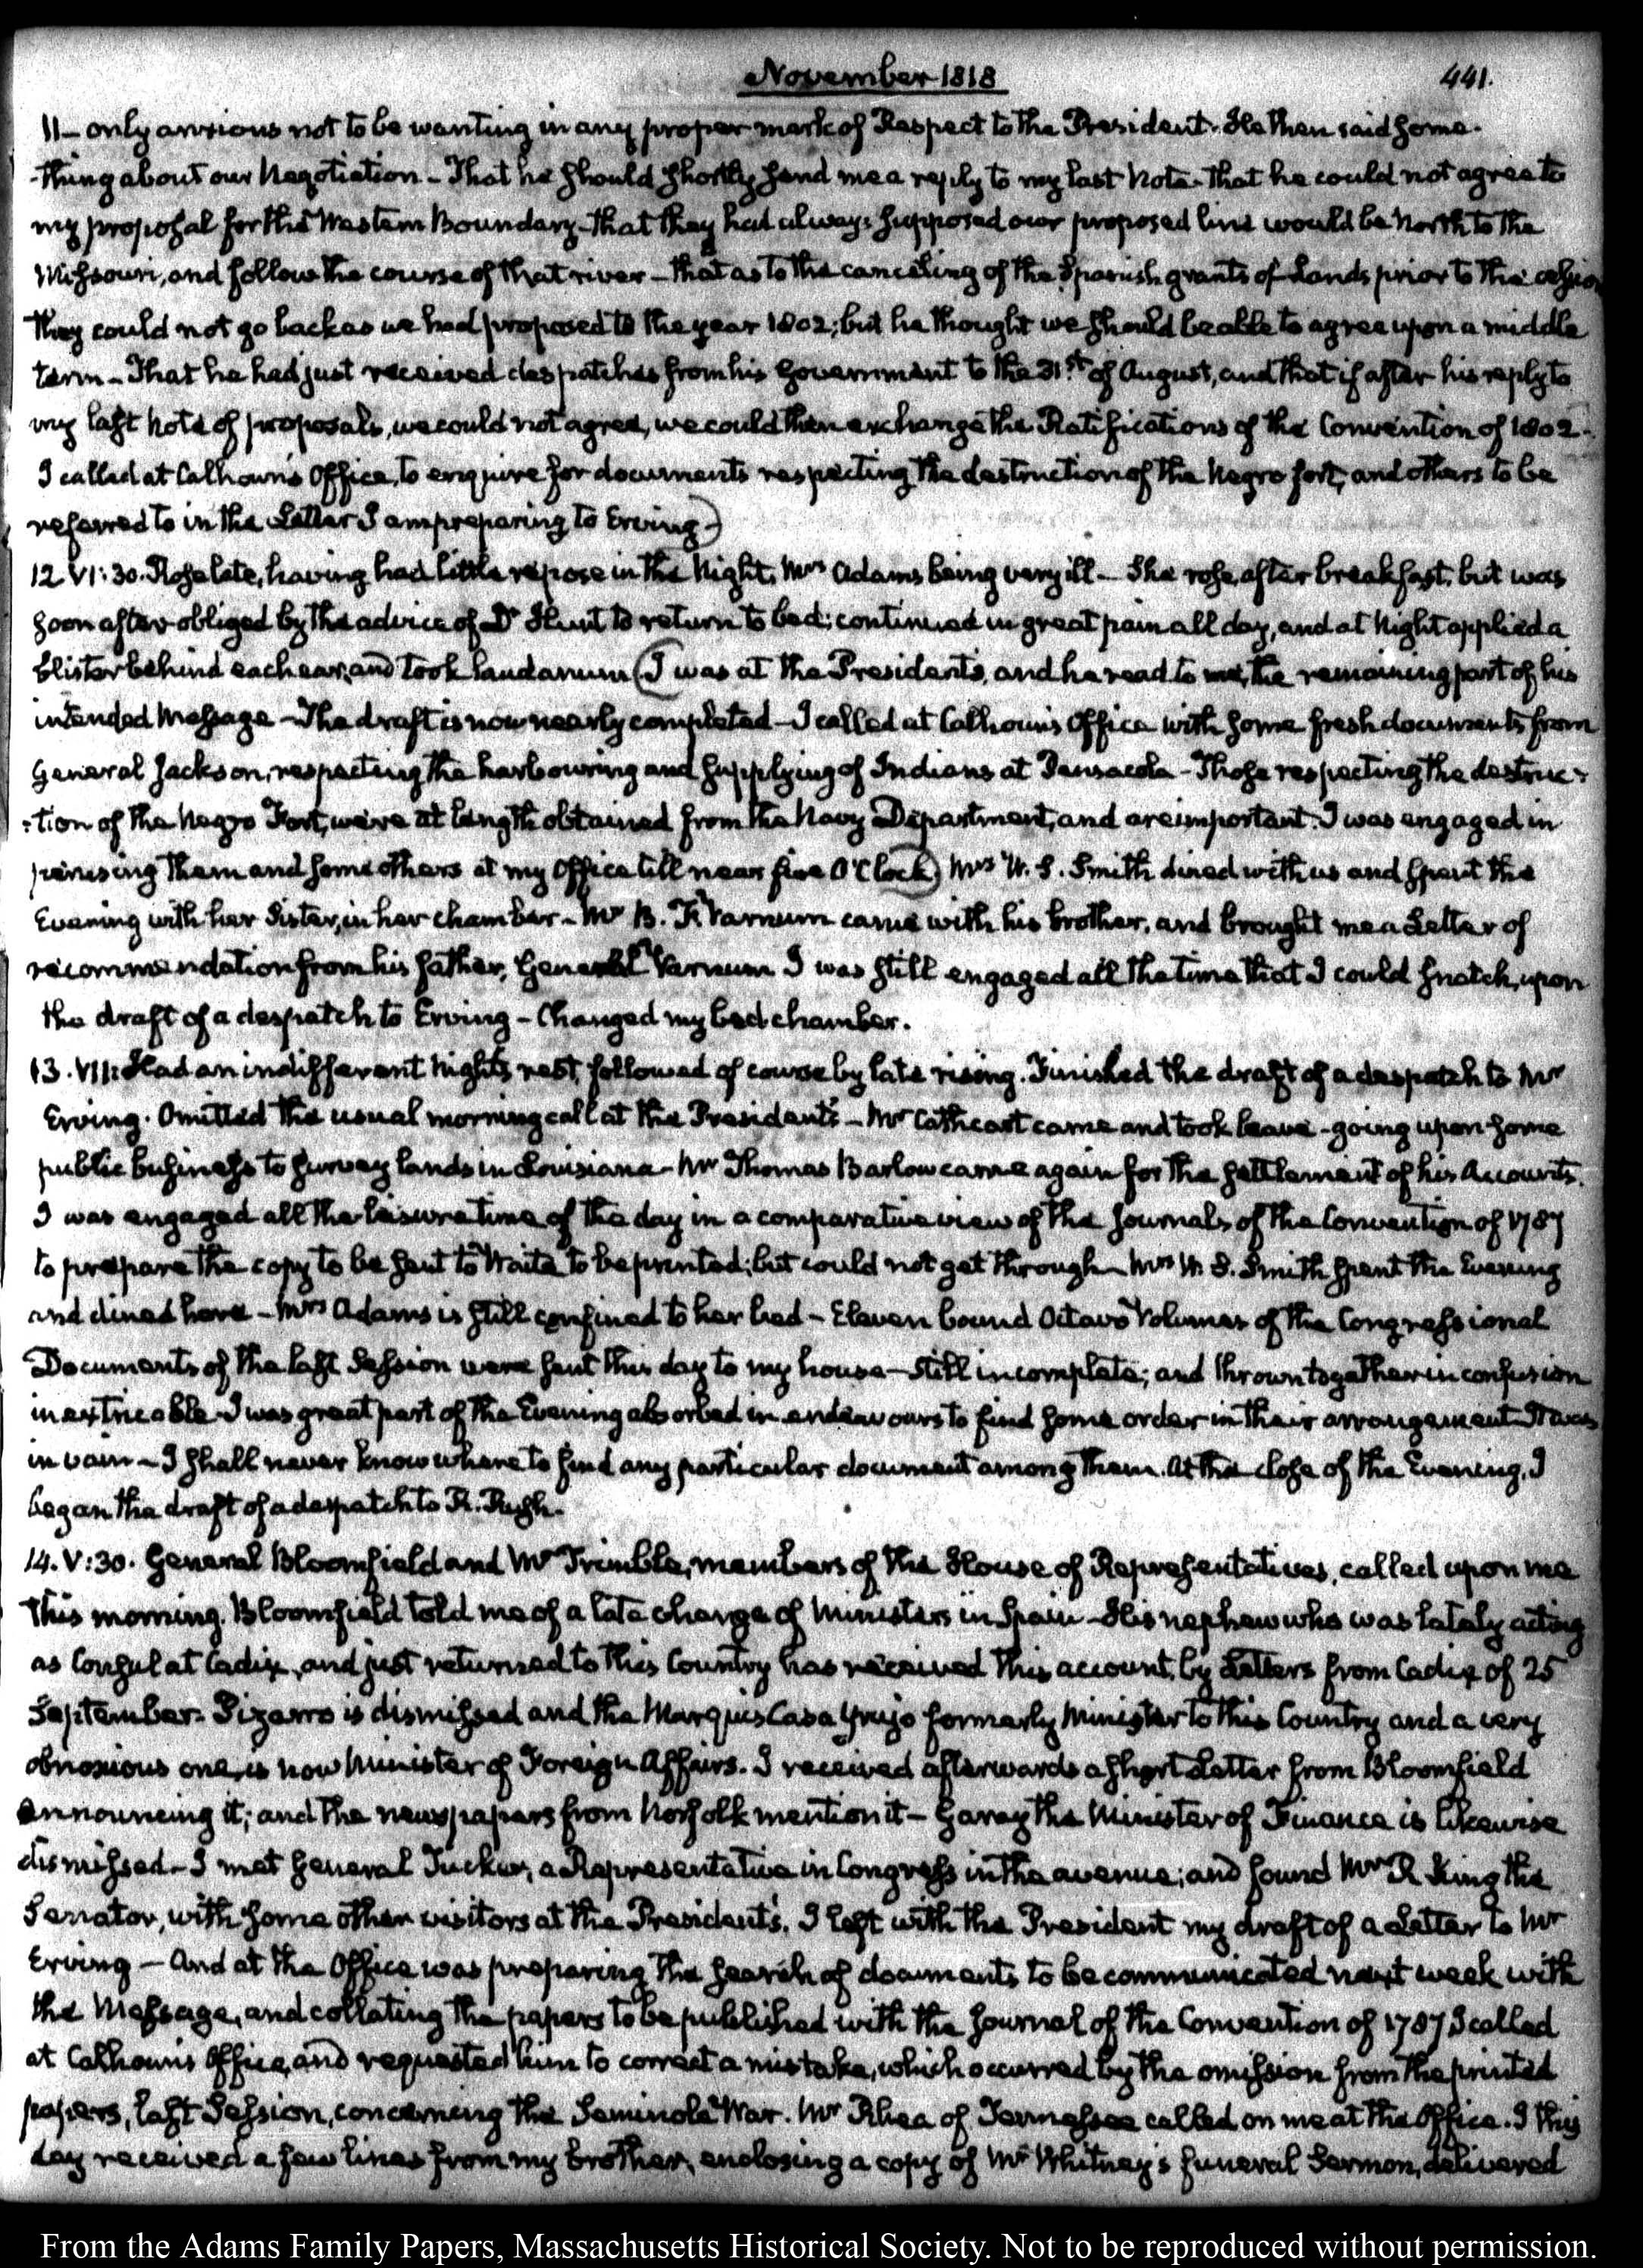 November 1818
441.
11— only anxious not to be wanting in any proper mark of Respect to the President. He then said some-
-thing about our Negotiation – That he should shortly send me a reply to my last Note – that he could not agree to
my proposal for the Western Boundary – that they had always supposed our proposed line would be North to the
Missouri, and follow the course of that river – that as to the canceling of the Spanish grants of Lands prior to the cession
they could not go back as we had proposed to the year 1802; but he thought we should be able to agree upon a middle
term – That he had just received despatches from his Government to the 31st. of August, and that if after his reply to
my last Note of proposals, we could not agree, we could then exchange the Ratifications of the Convention of 1802.
I called at Calhoun's Office, to enquire for documents respecting the destruction of the Negro fort, and others to be
referred to in the Letter I am preparing to Erving.)
12 VI:30. Rose late, having had little repose in the Night, Mrs Adams being very ill – She rose, after breakfast, but was
soon after obliged by the advice of Dr Hunt to return to bed; continued in great pain all day, and at Night applied a
blister behind each ear, and took laudanum (I was at the President's, and he read to me, the remaining part of his
intended Message – The draft is now nearly completed – I called at Calhoun's Office with some fresh documents from
General Jackson, respecting the harbouring and supplying of Indians at Pensacola – Those respecting the destruc-
-tion of the Negro Fort, were at length obtained from the Navy Department, and are important. I was engaged in
perusing them and some others at my Office till near five O'Clock) Mrs W. S. Smith dined with us and spent the
Evening with her Sister, in her chamber – Mr B. F. Varnum came with his brother, and brought me a Letter of
recommendation from his father, General Varnum I was still engaged all the time that I could snatch, upon
the draft of a despatch to Erving – Changed my bed chamber.
13. VII: Had an indifferent Night's rest, followed of course by late rising. Finished the draft of a despatch to Mr
Erving. Omitted the usual morning call at the President's – Mr Cathcart came and took leave – going upon some
public business to survey lands in Louisiana – Mr Thomas Barlow came again for the settlement of his Accounts.
I was engaged all the leisure time of the day in a comparative view of the Journals of the Convention of 1787
to prepare the copy to be sent to Waite to be printed; but could not get through – Mrs W. S. Smith spent the Evening
and dined here – Mrs Adams is still confined to her bed – Eleven bound Octavo Volumes of the Congressional
Documents of the last Session were sent this day to my house – still incomplete; and thrown together in confusion
inextricable – I was great part of the Evening absorbed in endeavours to find some order in their arrangement It was
in vain – I shall never know where to find any particular document among them. At the close of the Evening, I
began the draft of a despatch to R. Rush.
14. V:30. General Bloomfield and Mr Trimble, members of the House of Representatives, called upon me
this morning. Bloomfield told me of a late change of Ministers in Spain – His nephew who was lately acting
as Consul at Cadix, and just returned to this Country has received this account, by Letters from Cadiz of 25
September. Pizarro is dismissed and the Marquis Casa Yrujo formerly Minister to this Country and a very
obnoxious one, is now Minister of Foreign Affairs. I received afterwards a short Letter from Bloomfield
announcing it; and the newspapers from Norfolk mention it – Garay the Minister of Finance is likewise
dismissed – I met General Tucker, a Representative in Congress in the avenue; and found Mr R King the
Senator, with some other visitors at the President's. I left with the President my draft of a Letter to Mr
Erving – And at the Office was preparing the search of documents to be communicated next week with
the Message, and collating the papers to be published with the Journal of the Convention of 1787 I called
at Calhoun's Office, and requested him to correct a mistake, which occurred by the omission from the printed
papers, last Session, concerning the Seminole War. Mr Rhea of Tennessee called on me at the Office. I this
day received a few lines from my brother, enclosing a copy of Mr Whitney's funeral Sermon, delivered
From the Adams Family Papers, Massachusetts Historical Society. Not to be reproduced without permission.